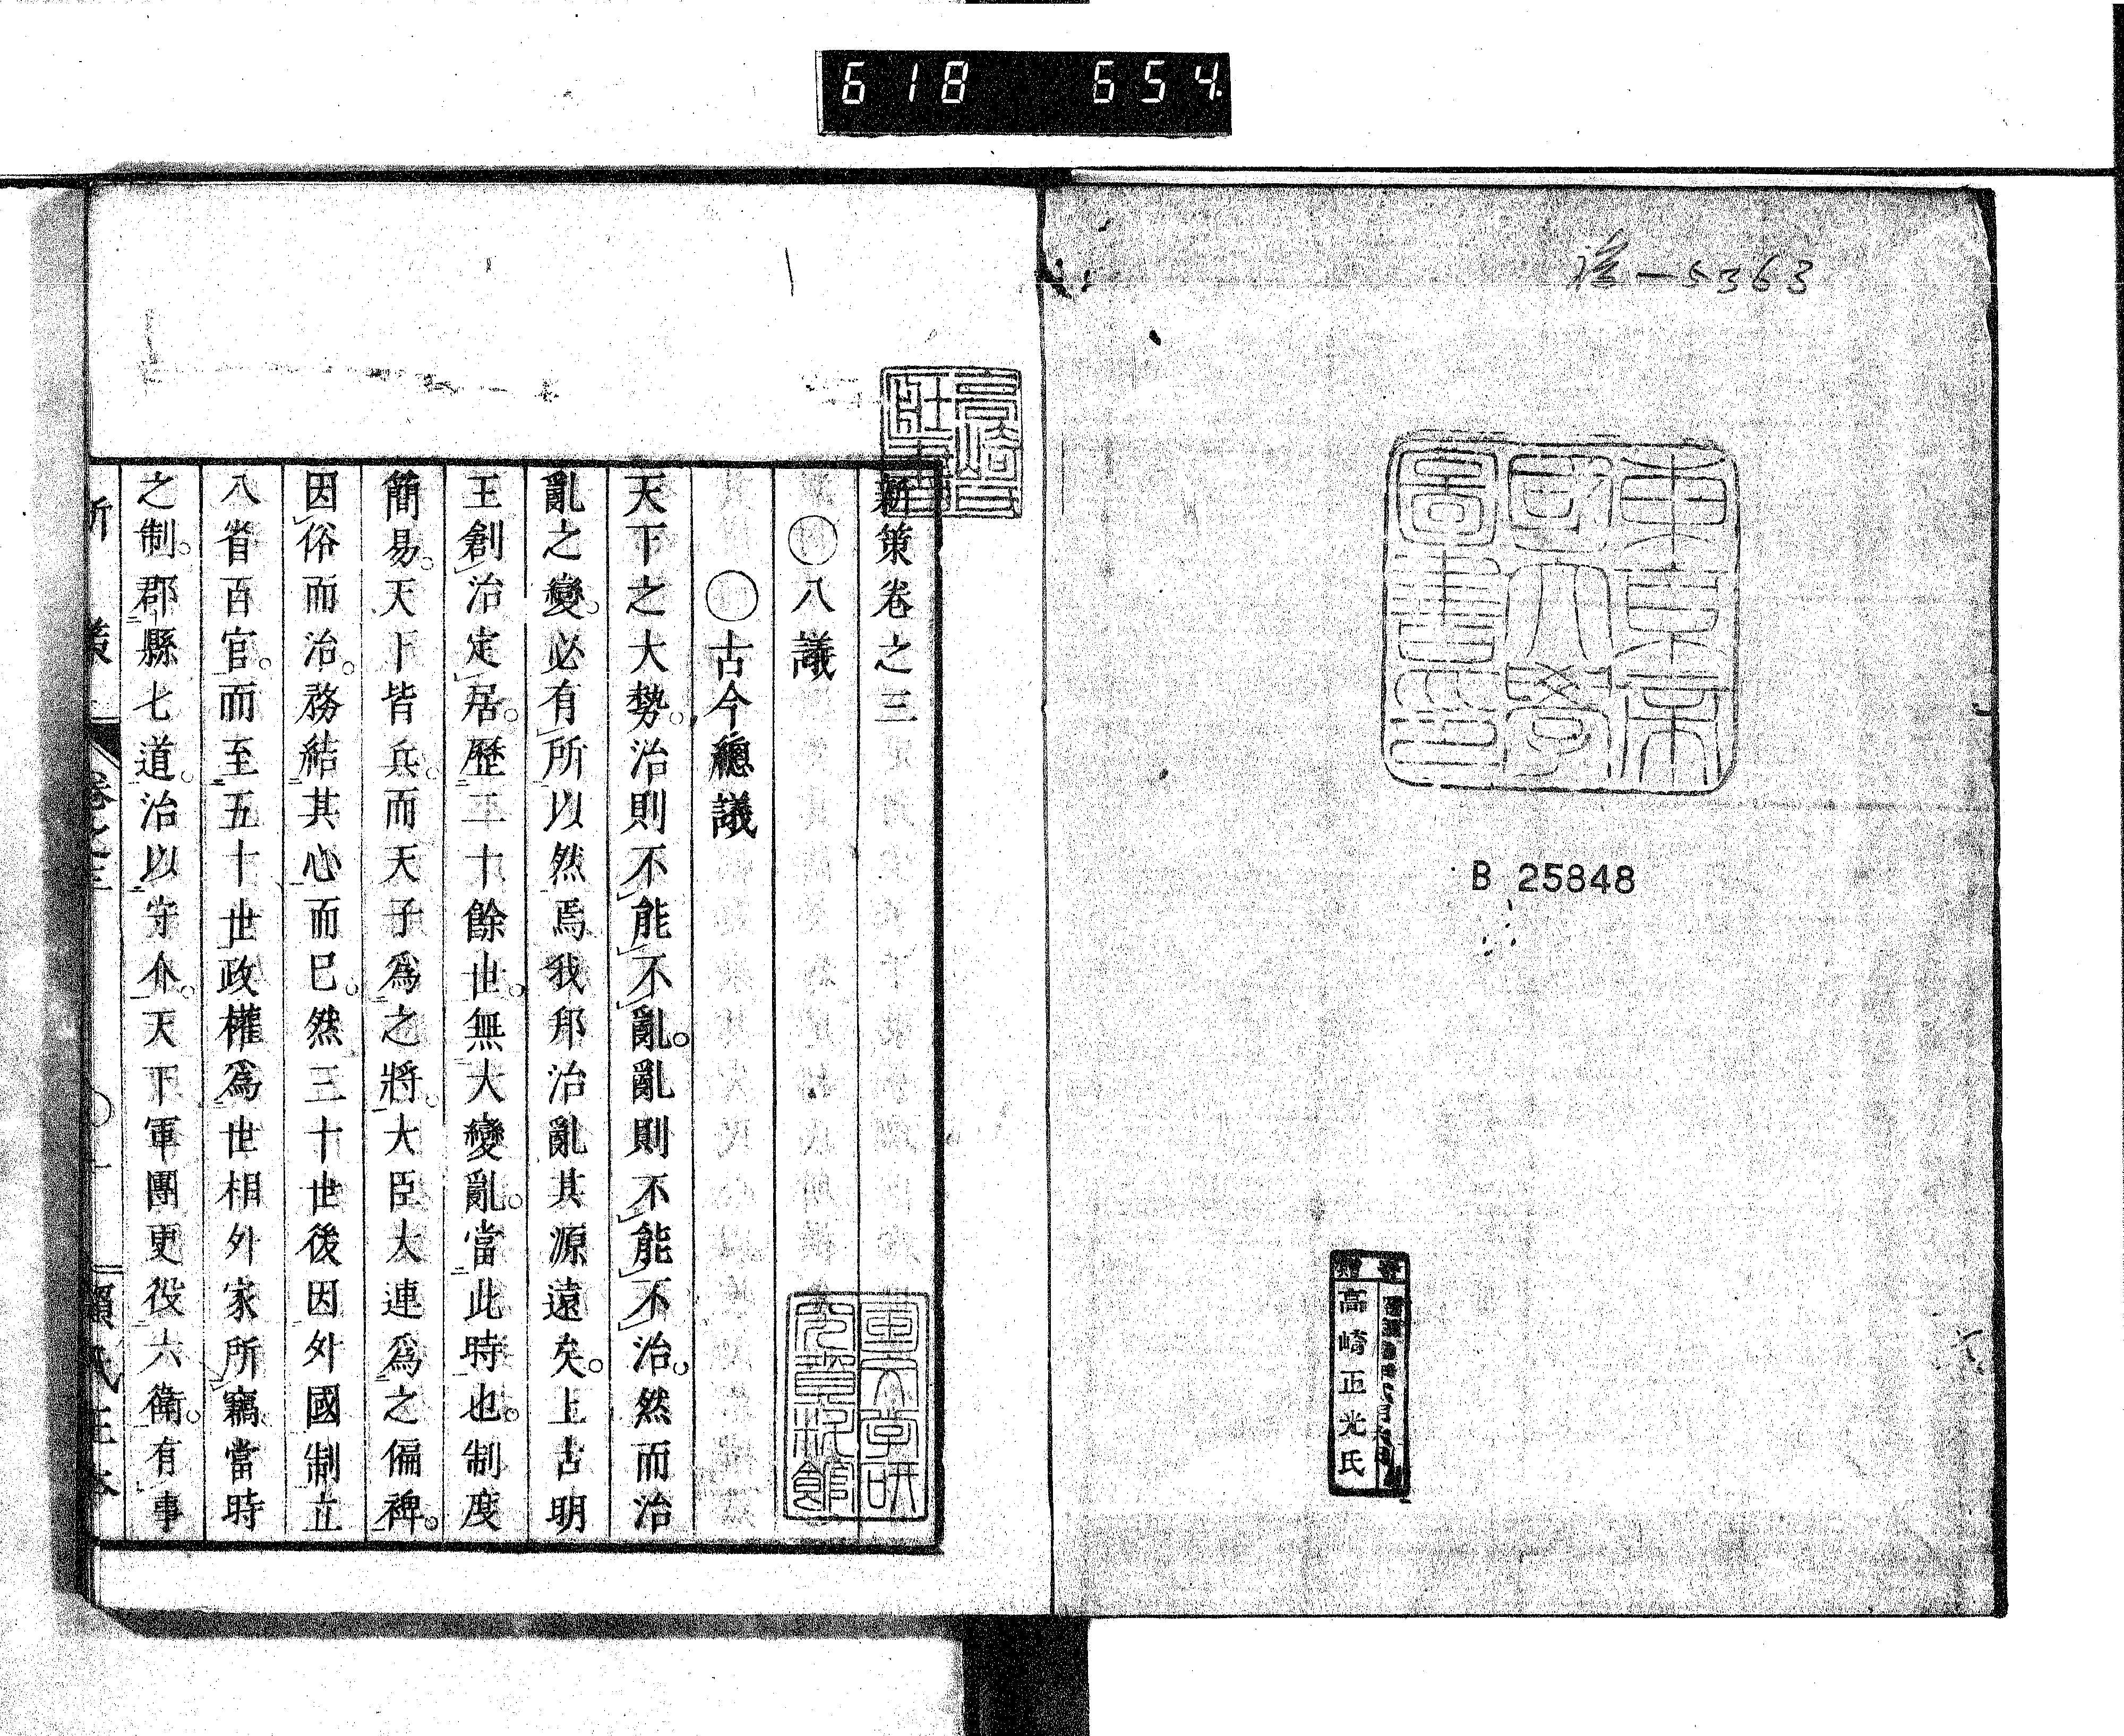 618 654
5363
東京帝
國大學
圖書印
B 25848
寄贈
高崎正光氏
新策卷之三
〇八議
〇古今總議
天下之大勢。治則不能不亂。亂則不能不治。然而治
亂之變。必有所以然焉我邦治亂其源遠矣。上古明
王創治定居。歷二十餘世。無大變亂。當此時也。制度
簡易。天下皆兵。而天子爲之將。大臣大連爲之偏裨。
因俗而治。務結其心而已。然三十世後因外國制立
八省百官。而至五十世政權爲世相外家所竊。當時
之制。郡縣七道。治以守介。天下軍團更役六衛。有事
新策
卷之三
〇 一
賴氏正本